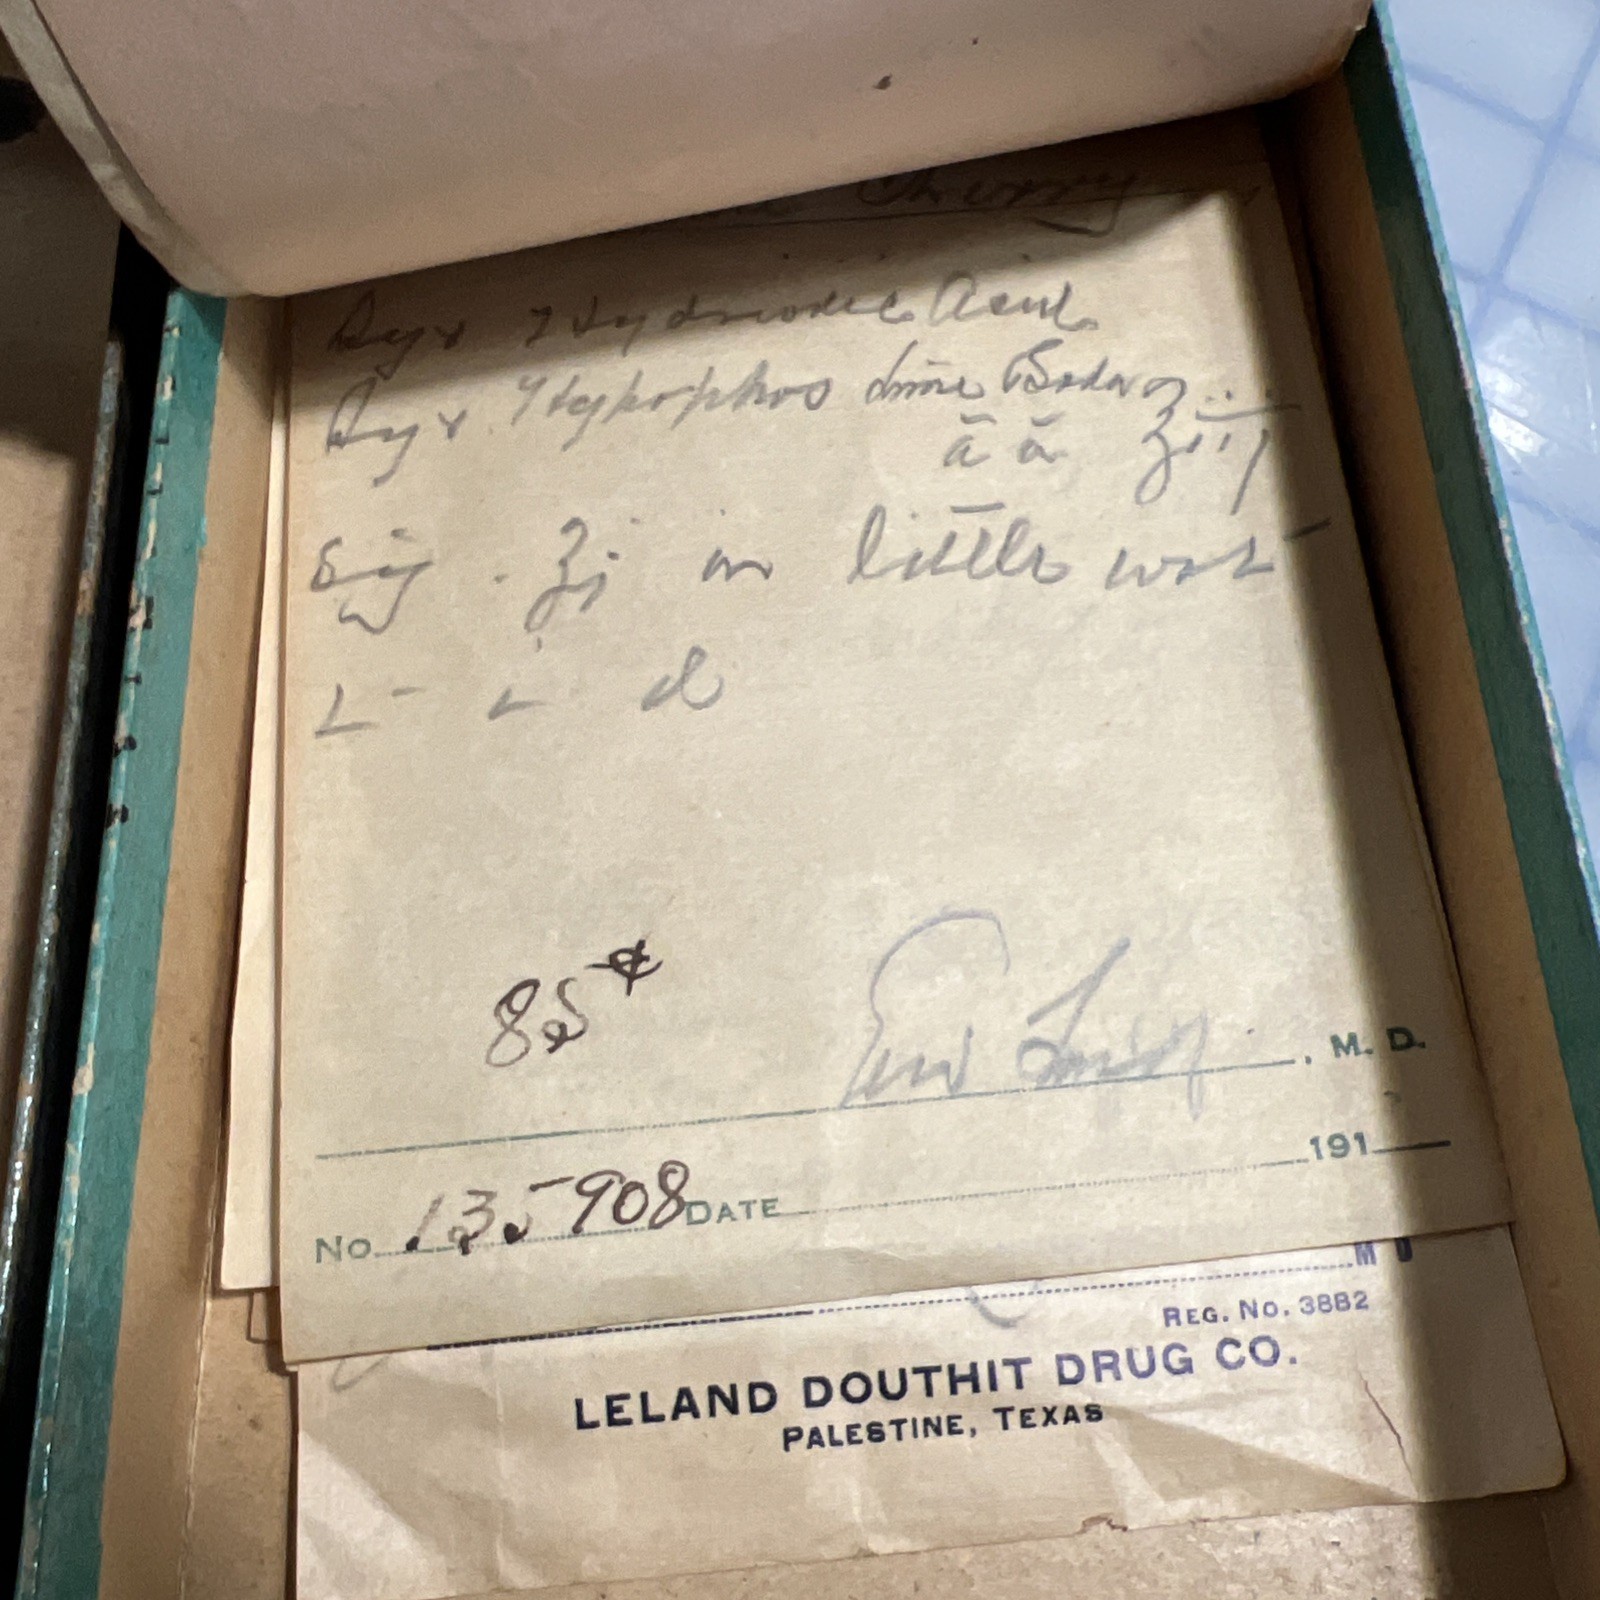 Syr Hydriodic Acid
Syr Hypophos Lime & Soda
āā ℥iij
Sig. ʒj in little wat
t i d
85¢
M. D.
No. 135908 DATE 191
M D
REG. NO. 3882
LELAND DOUTHIT DRUG CO.
PALESTINE, TEXAS